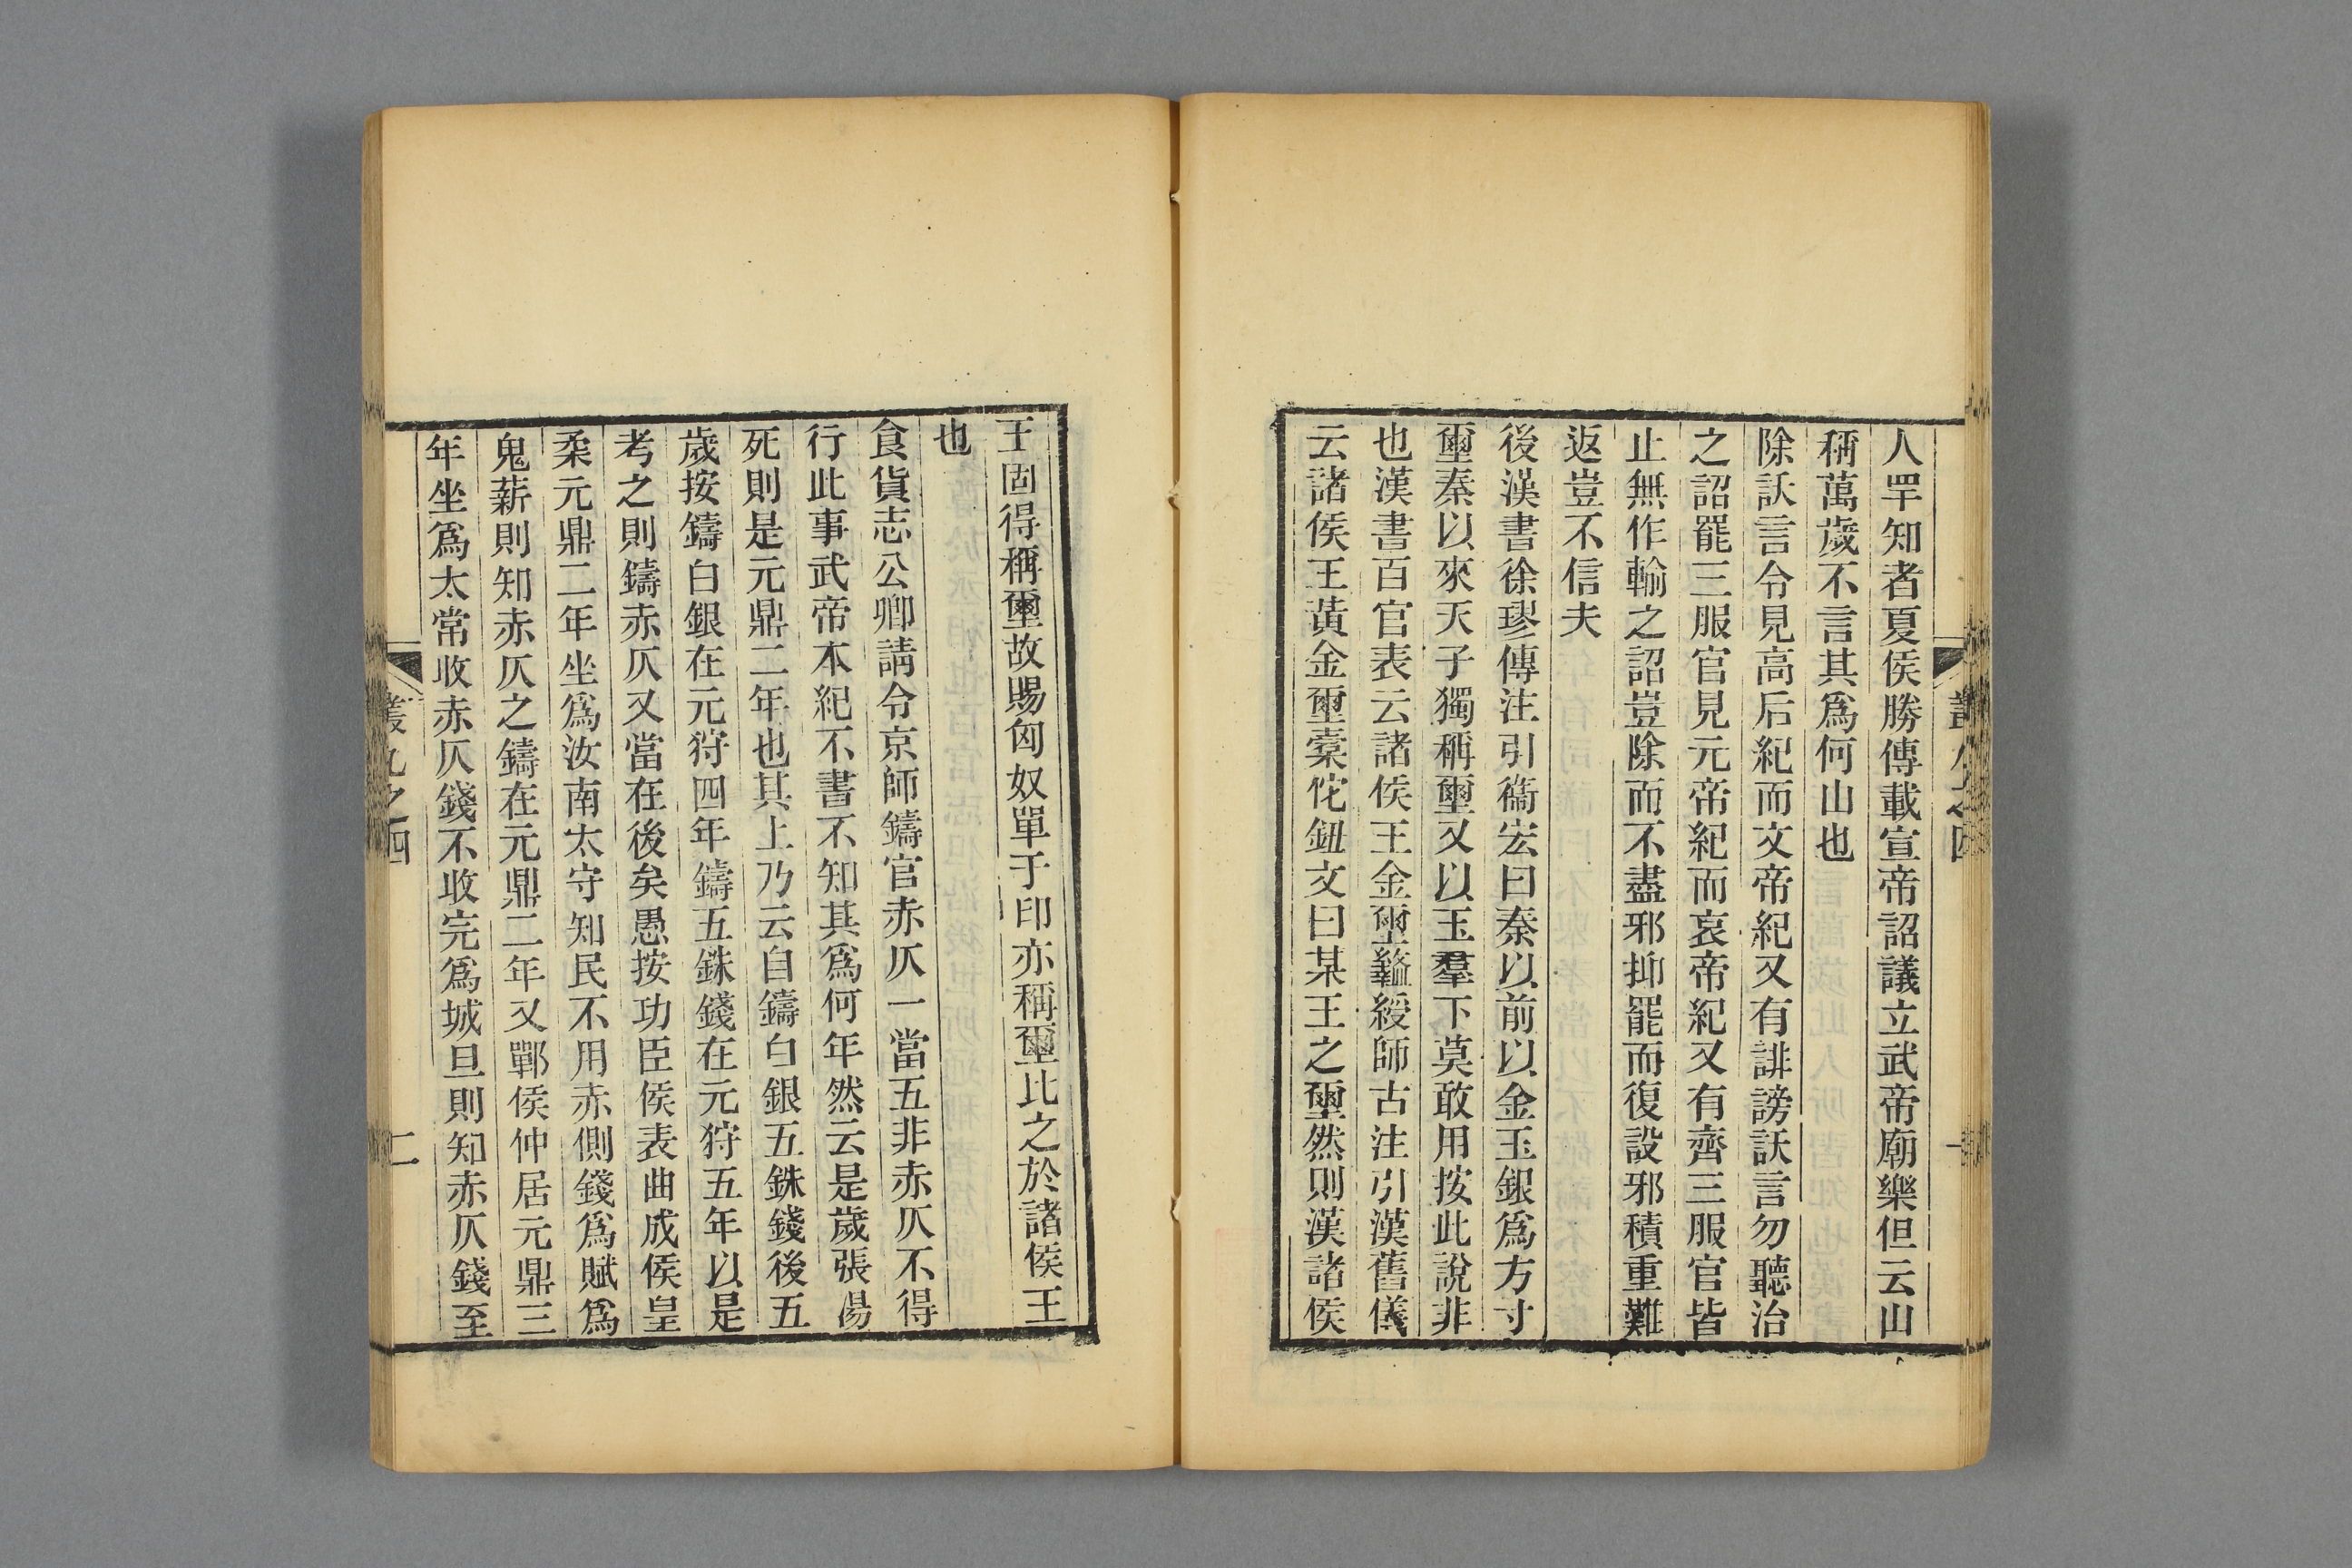 人罕知者夏侯勝傳載宣帝詔議立武帝廟樂但云山
稱萬歲不言其爲何山也
除訞言令見高后紀而文帝紀又有誹謗訞言勿聽治
之詔罷三服官見元帝紀而哀帝紀又有齊三服官皆
止無作輸之詔豈除而不盡邪抑罷而復設邪積重難
返豈不信夫
後漢書徐璆傳注引衞宏曰秦以前以金玉銀爲方寸
璽秦以來天子獨稱璽又以玉羣下莫敢用按此說非
也漢書百官表云諸侯王金璽盭綬師古注引漢舊儀
云諸侯王黃金璽橐佗鈕文曰某王之璽然則漢諸侯
王固得稱璽故賜匈奴單于印亦稱璽比之於諸侯王
也
食貨志公卿請令京師鑄官赤仄一當五非赤仄不得
行此事武帝本紀不書不知其爲何年然云是歲張湯
死則是元鼎二年也其上乃云自鑄白銀五銖錢後五
歲按鑄白銀在元狩四年鑄五銖錢在元狩五年以是
考之則鑄赤仄又當在後矣愚按功臣侯表曲成侯皇
柔元鼎二年坐爲汝南太守知民不用赤側錢爲賦爲
鬼薪則知赤仄之鑄在元鼎二年又鄲侯仲居元鼎三
年坐爲太常收赤仄錢不收完爲城旦則知赤仄錢至
叢九之四
二